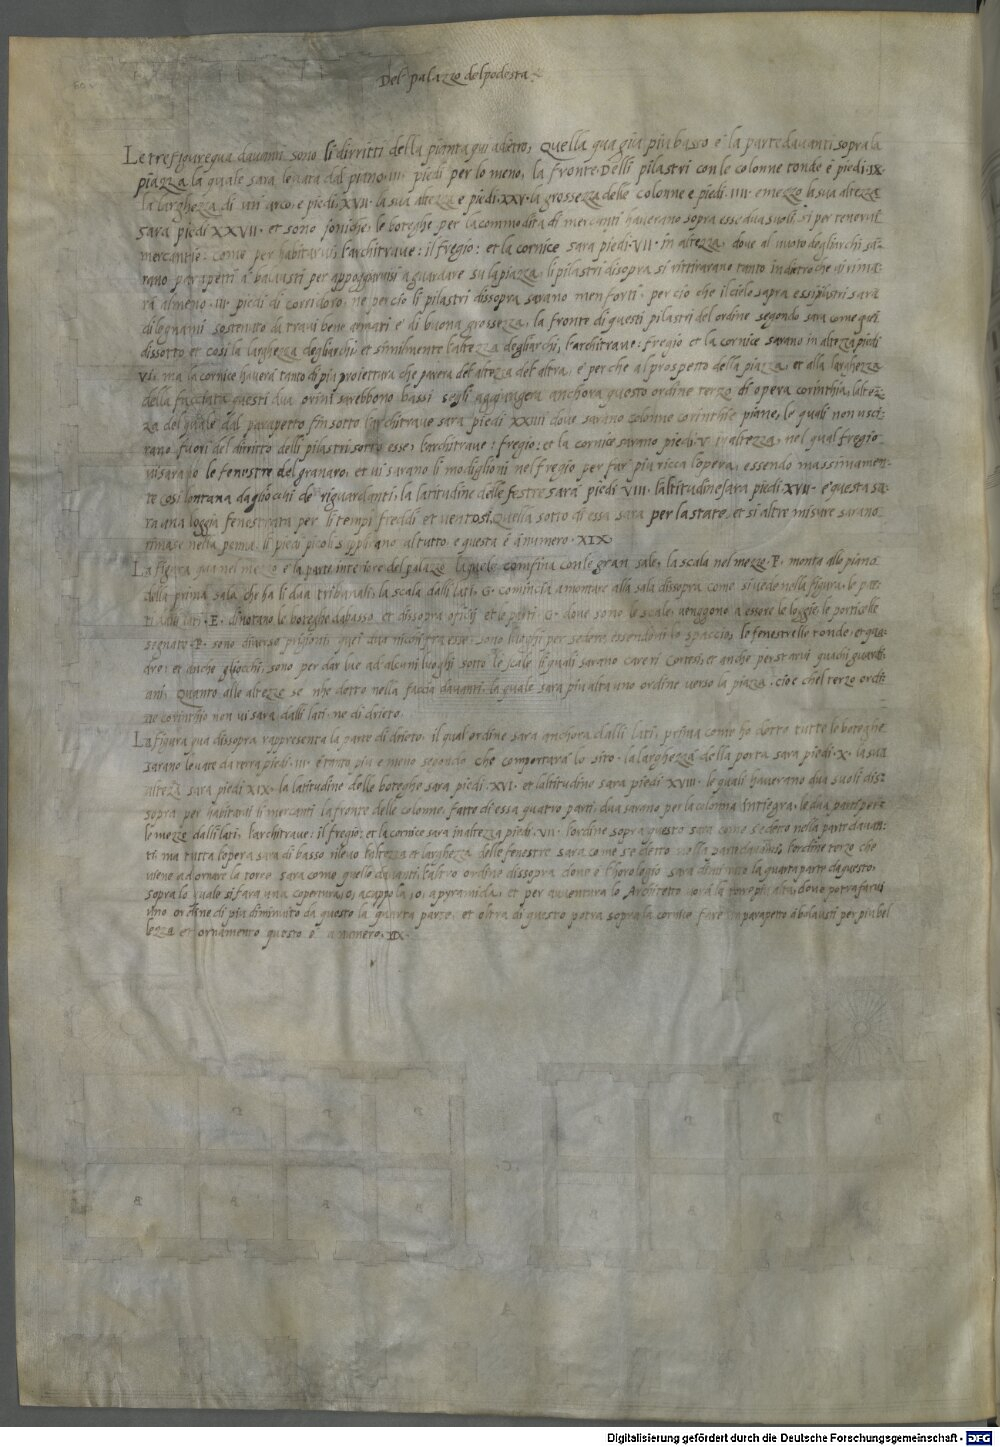 Del palazzo del podesta
Le tre figure qua davanti sono li dirritti della pianta qui adietro, Quella qua giu piu basso e la parte davanti sopra la
piazza la quale sara levata dal piano .III. piedi per lo meno, la fronte delli pilastri con le colonne tonde e piedi .IX.
la larghezza di un arco e piedi .XVII. la sua altezza e piedi .XXV. la grossezza delle colonne e piedi .IIII. e mezzo la sua altezza
sara piedi XXVII. et sono ioniche, le boteghe per la commodita di mercanti haverano sopra esse dua suoli si per tenervi
mercantie: come per habitarvi, l'architrave: il fregio: et la cornice sara piedi .VII. in altezza, dove al vuoto degliarchi sa-
rano parapetti a balausti per appoggiarvisi a guardare su la piazza, li pilastri disopra si rittirarano tanto in dietro che vi rima-
ra almeno .III. piedi di corridoro, ne per cio li pilastri dissopra sarano men forti, per cio che il cielo sopra essi pilastri sara
di legnami sostenuto da travi bene armati e di buona grossezza, la fronte di questi pilastri del ordine segondo sara come quei
dissotto et cosi la larghezza degliarchi, et similmente l'altezza degliarchi, l'architrave: fregio et la cornice sarano in altezza piedi
VI, ma la cornice havera tanto di piu proiettura che parera del altezza del altra, e perche al prospetto della piazza, et alla larghezza
della facciata questi dua ordini sarebbono bassi segli aggiugera anchora questo ordine terzo di opera corinthia, l'altez-
za del quale dal parapetto fin sotto l'architrave sara piedi XXIIII dove sarano colonne corinthie piane, le quali non usci-
rano fuori del diritto delli pilastri sotto esse, l'architrave: fregio: et la cornice sarano piedi .V. in altezza, nel qual fregio
vi sarano le fenestre del granaro, et vi sarano li modiglioni nel fregio per far piu ricca l'opera, essendo massimamen-
te cosi lontana da gliocchi de riguardanti, la latitudine delle festre sara piedi VIII. l'altitudine sara piedi XVII. e questa sa-
ra una loggia fenestrata per li tempi freddi et ventosi, Quella sotto di essa sara per la state, et si altre misure sarano
rimase nella penna li piedi picoli suppliano al tutto e questa e a numero .XIX.
La figura qua nel mezzo e la parte interiore del palazzo laquale comfina con le gran sale, la scala nel mezzo .F. monta allo piano
della prima sala che ha li dua tribunali, la scala dalli lati .G. comincia a montare alla sala dissopra come si vede nella figura, le par-
ti dalli lati .E. dinotano le boteghe dabasso et dissopra oficij et le parti .G. dove sono le scale, vengono a essere le loggie, le porticelle
segnate .P. sono diverse prigioni, quei dua nicchi fra esse, sono luoghi per sedere essendovi lo spaccio, le fenestrelle tonde, e qua-
dre: et anche gliocchi, sono per dar lue ad alcuni luoghi sotto le scale li quali sarano carceri cortesi, et anche per starvi quachi guardi-
ani, Quanto alle altezze se nhe detto nella faccia davanti, la quale sara piu alta uno ordine verso la piazza, cioe chel terzo ordi-
ne corinthio non vi sara dalli lati, ne di drieto.
La figura qua dissopra rappresenta la parte di drieto, il qual ordine sara anchora dalli lati, prima come ho detto tutte le boteghe
sarano levate da tera piedi .III. e tanto piu e meno segondo che comportara lo sito, la larghezza della porta sara piedi .X. la sua
altezza sara piedi XIX. la latitudine delle boteghe sara piedi .XVI. et laltitudine sara piedi XVIII. le quali haverano dua suoli dis-
sopra per habitarvi li mercanti la fronte delle colonne fatte di essa quatro parti, dua sarano per la colonna intiegra, le dua parti per
le mezze dalli lati, l'architrave: il fregio: et la cornice sara in altezza piedi .VII. l'ordine sopra questo sara come s'e detto nella parte davan-
ti, ma tutta l'opera sara di basso rilievo l'altezza et larghezza delle fenestre sara come s'e detto nella parte davanti, l'ordine terzo che
viene ad ornare la torre sara come quello davanti, l'altro ordine dissopra dove e l'horologio sara diminuito la quarta parte da questo,
sopra lo quale si fara una copertura, o, a cuppola, o, a pyramida, et per aventura lo Architetto vora la torre piu alta, dove potra farvi
uno ordine di piu diminuito da questo la quarta parte, et oltra di questo potra sopra la cornice fare un parapetto a balausti per piu bel
lezza et ornamento questo e a numero .IIX.
Digitalisierung gefördert durch die Deutsche Forschungsgemeinschaft - DFG